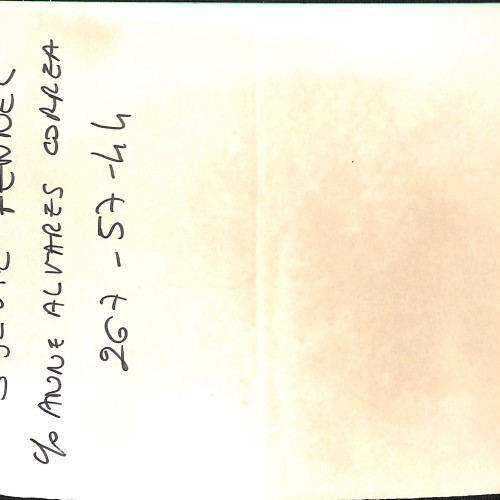 FENNEL
c/o ANNE ALVARES CORREA
267-57-44